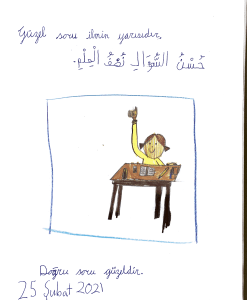 Güzel soru ilmin yarısıdır.
حُسْنُ السُّؤَالِ نُصْفُ الْعِلْمِ.
Doğru soru güzeldir.
25 Şubat 2021